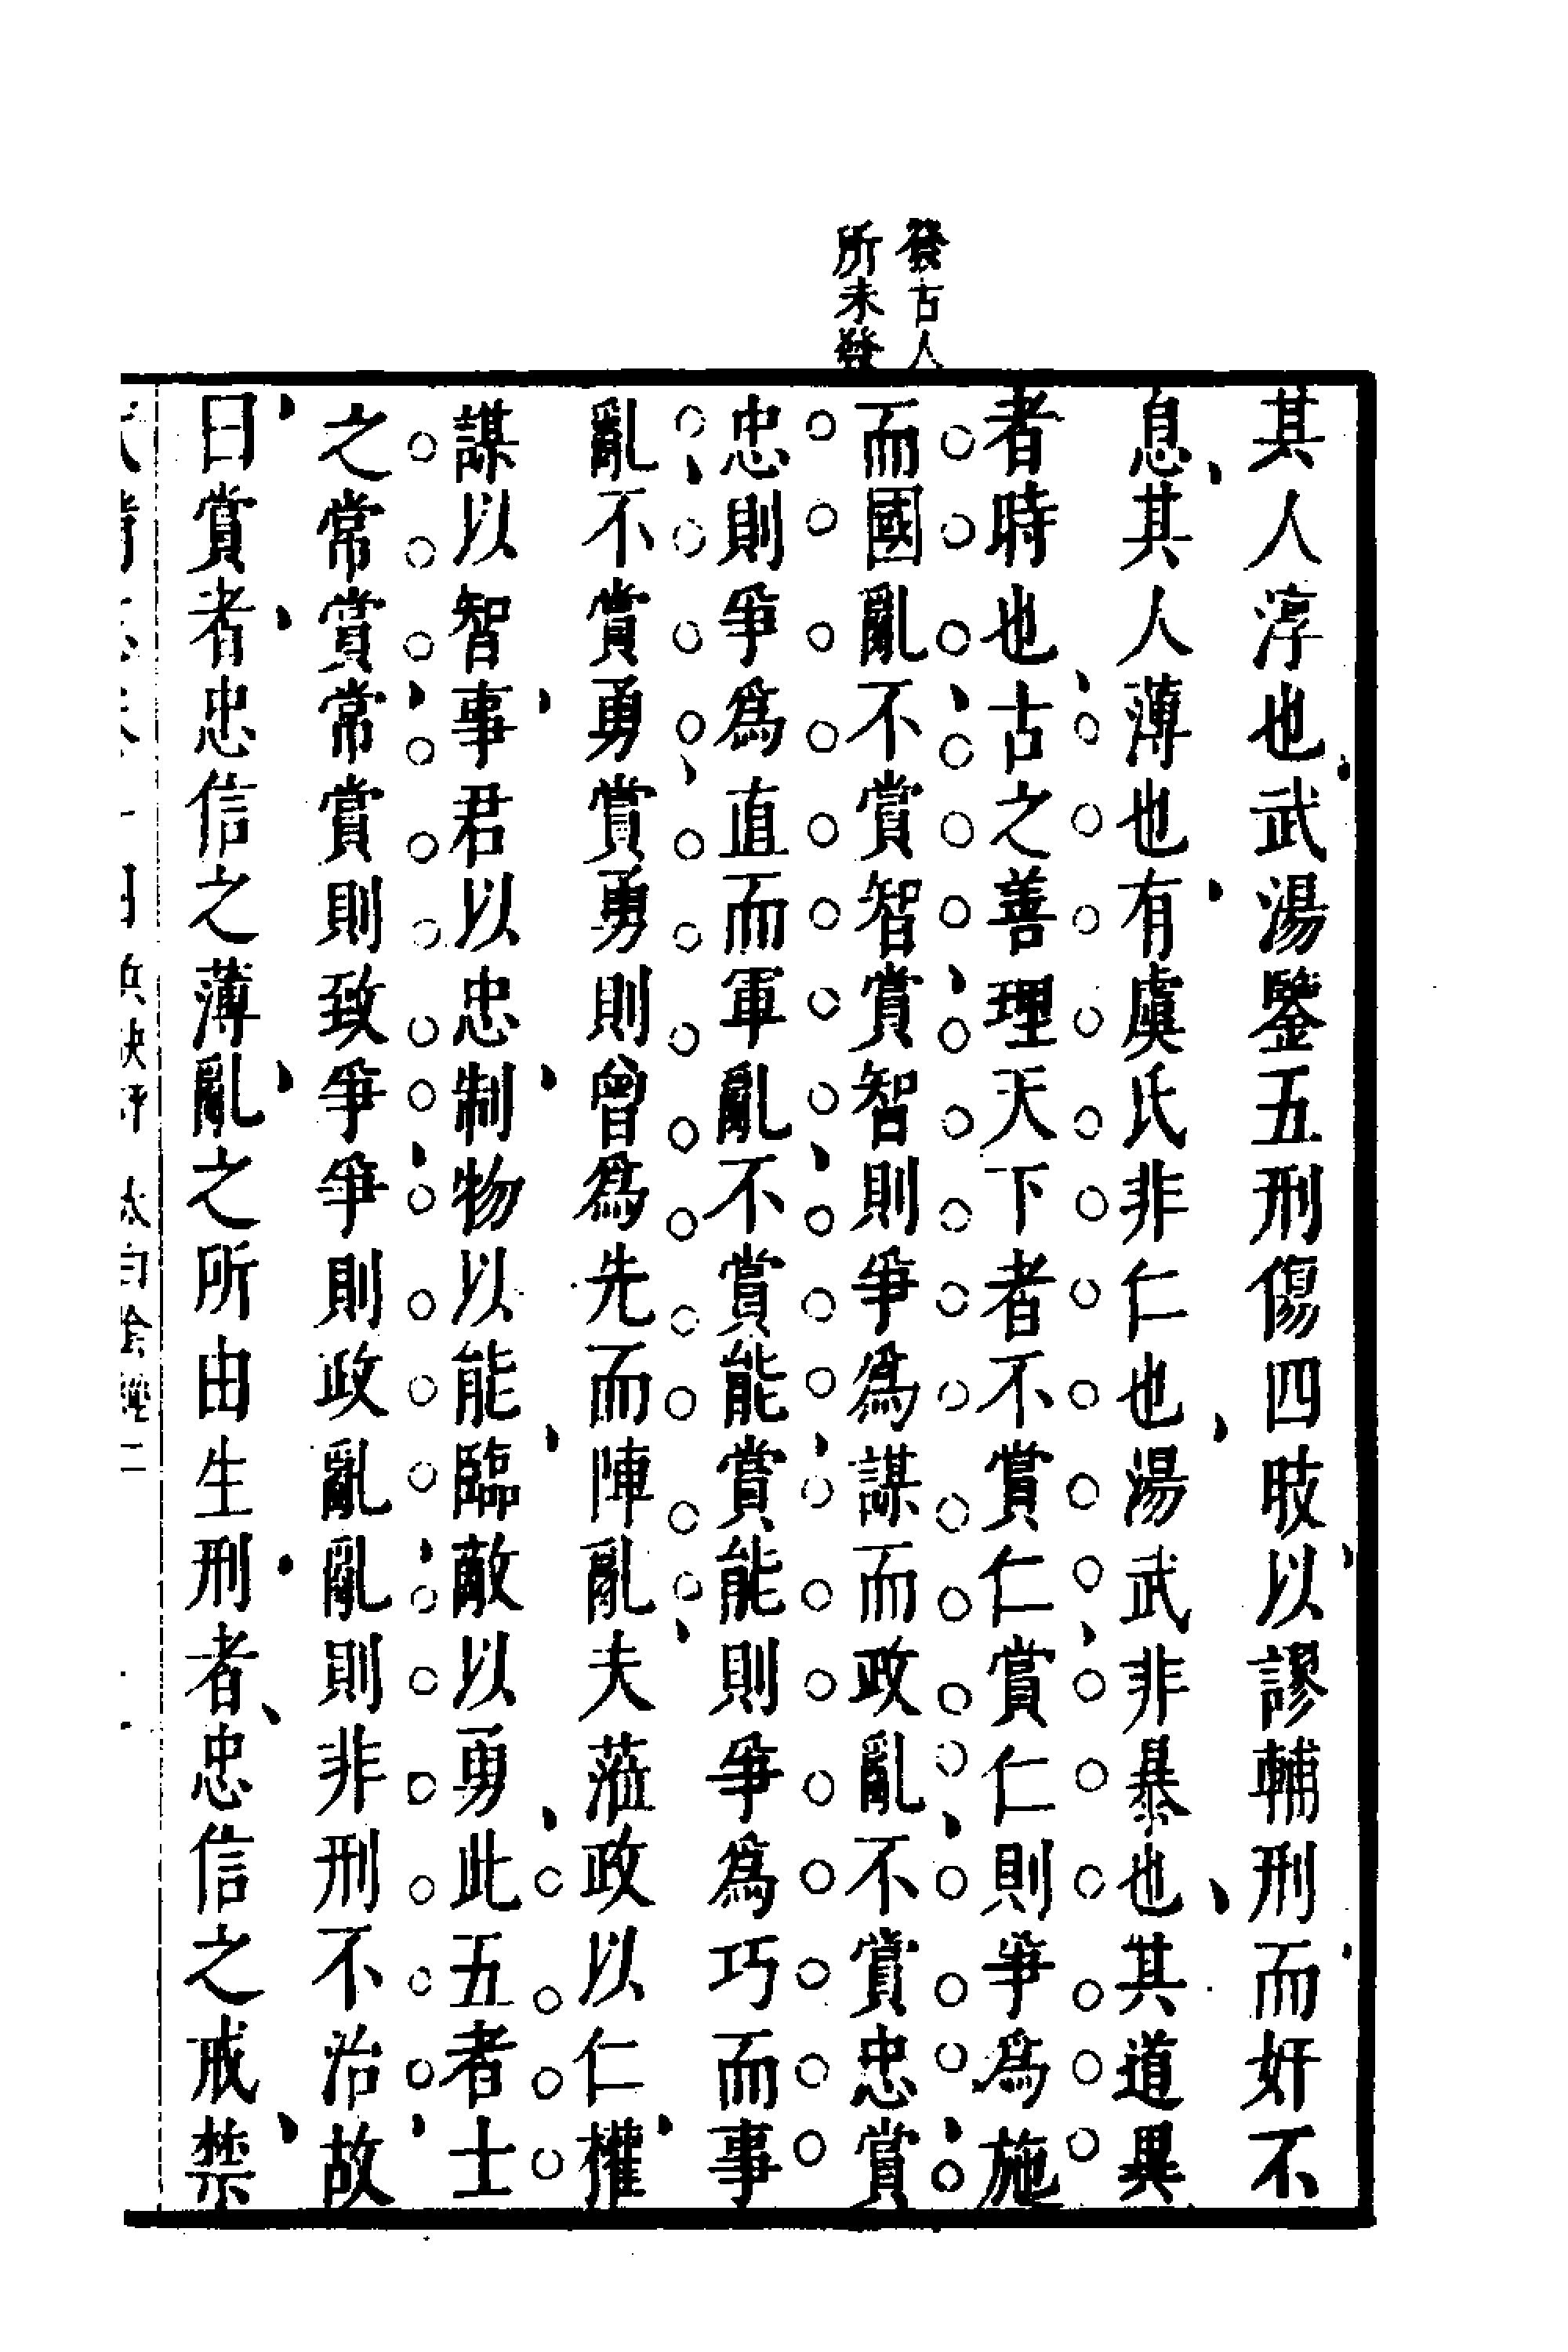 發古人
所未發
其人淳也武湯鑒五刑傷四肢以謬輔刑而奸不
息其人薄也有虞氏非仁也湯武非暴也其道異
者時也古之善理天下者不賞仁賞仁則爭為施
而國亂不賞智賞智則爭為謀而政亂不賞忠賞
忠則爭為直而軍亂不賞能賞能則爭為巧而事
亂不賞勇賞勇則曾為先而陣亂夫蒞政以仁權
謀以智事君以忠制物以能臨敵以勇此五者士
之常賞常賞則致爭爭則政亂亂則非刑不治故
曰賞者忠信之薄亂之所由生刑者忠信之戒禁
兵訣評 太白陰經二